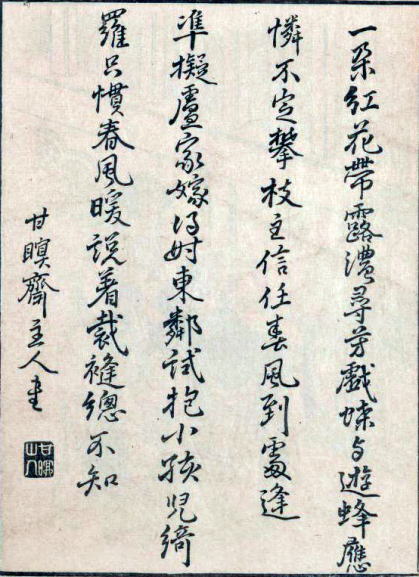 一朵紅花帶露濃尋芳戲蝶与遊蜂應
憐不定攀枝主信任春風到處逢
準擬盧家嫁得時東鄰試抱小孩兒綺
羅只慣春風暖説着裁縫總不知
甘瞑齋主人書